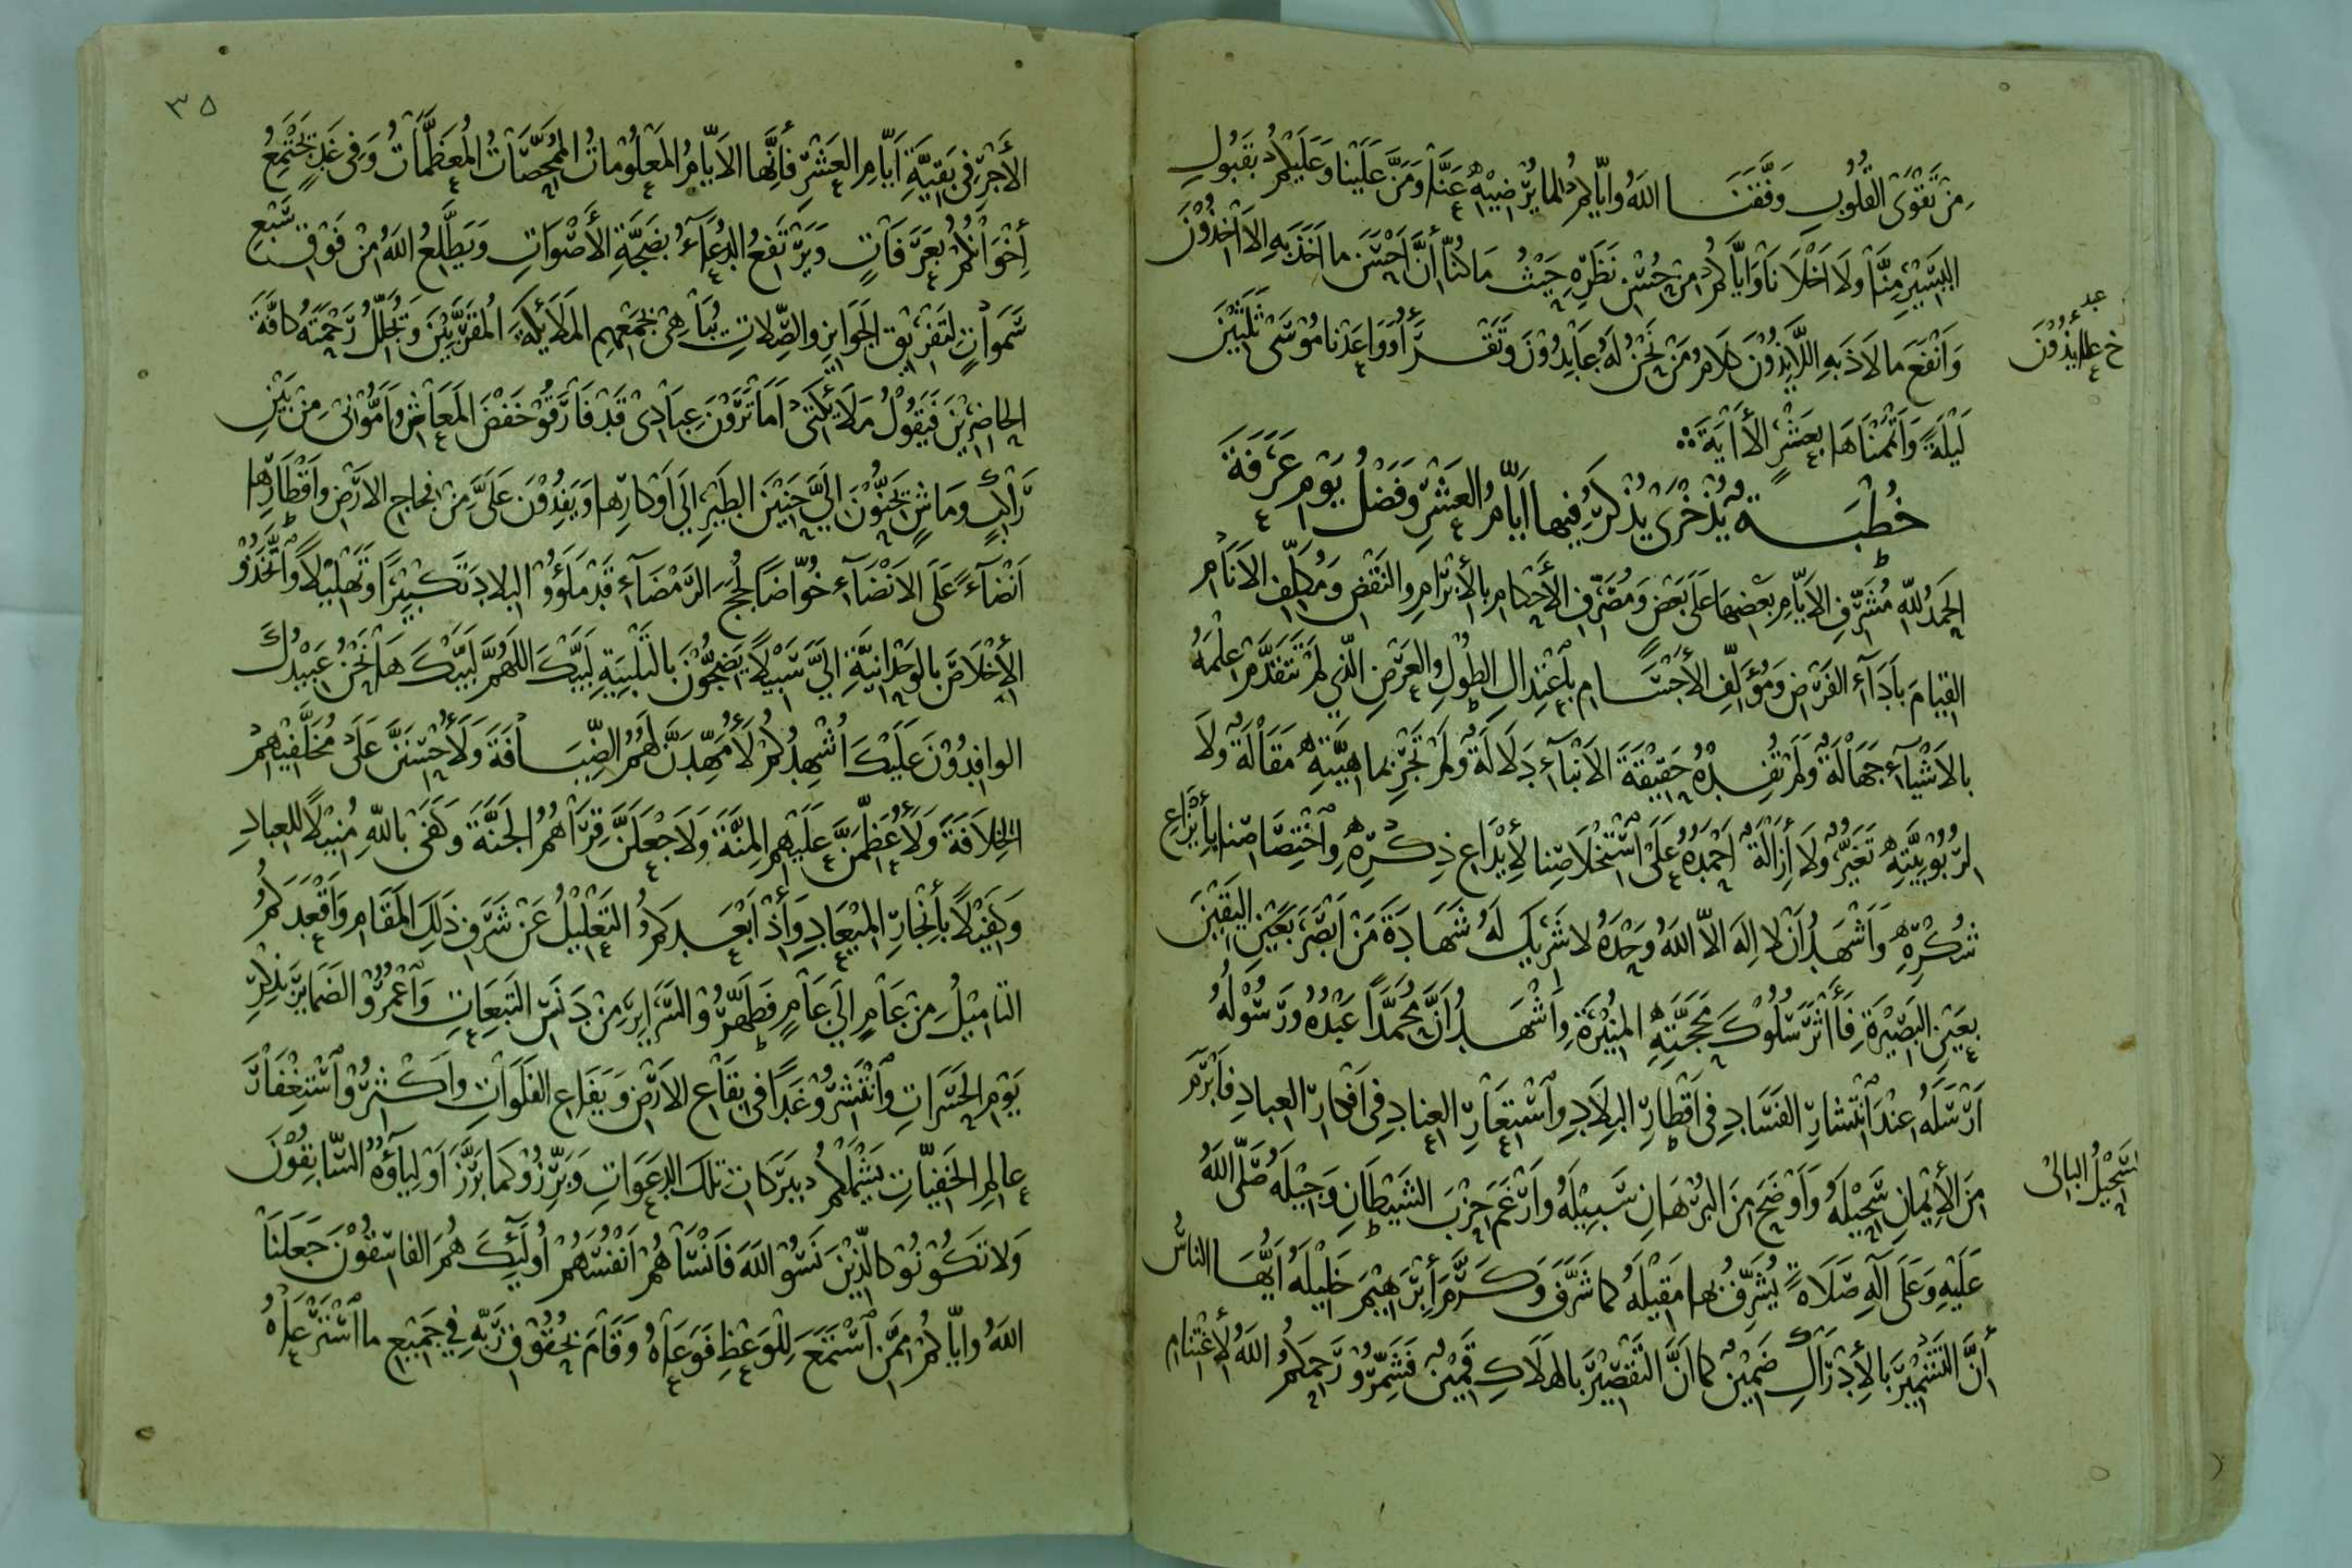 مِنْ تَقْوَى الْقُلُوبِ وَفَّقَنَا اللهُ وَإِيَّاكُمْ لِمَا يُرْضِيْهِ عَنَّا وَمَنَّ عَلَيْنَا وَعَلَيْكُمْ بِقَبُولِ
الْيَسِيْرِ مِنَّا وَلَا أَخْلَانَا وَإِيَّاكُمْ مِنْ حُسْنِ نَظَرِهِ حَيْثُ مَا كُنَّا أَنَّ أَحْسَنَ مَا أَخَذَ بِهِ الْآخِذُوْنَ
وَأَنْفَعَ مَا لَاذَ بِهِ اللَّايِذُوْنَ كَلَامُ مَنْ نَحْنُ لَهُ عَابِدُوْنَ وَتَقْرَأُ وَوَاعَدْنَا مُوْسَى ثَلٰثِيْنَ
لَيْلَةً وَأَتْمَمْنَاهَا بِعَشْرٍ الْأَايَةَ
خُطْبَةٌ أُخْرَى يُذْكَرُ فِيهَا أَيَّامُ الْعَشْرِ وَفَضْلُ يَوْمِ عَرَفَةَ
الْحَمْدُ لِلّٰهِ مُشَرِّفِ الْأَيَّامِ بَعْضِهَا عَلَى بَعْضٍ وَمُصَرِّفِ الْأَحْكَامِ بِالْأِبْرَامِ وَالنَّقْضِ وَمُكَلِّفِ الْأَنَامِ
الْقِيَامَ بِأَدَآءِ الْفَرْضِ وَمُؤَلِّفِ الْأَجْسَامِ بِاعْتِدَالِ الطُّوْلِ وَالْعَرْضِ الَّذِي لَمْ تَتَقَدَّمْ عِلْمَهُ
بِالْأَشْيَآءِ جَهَالَةٌ وَلَمْ تُفِدْهُ حَقِيْقَةَ الْأَنْبَآءِ دَلَالَةٌ وَلَمْ تَجْرِ بِمَاهِيَّتِهِ مَقَالَةٌ وَلَا
لِرُبُوْبِيَّتِهِ تَغَيُّرٌ وَلَا إِزَالَةٌ أَحْمَدُهُ عَلَى اسْتِخْلَاصِنَا لِأِيْدَاعِ ذِكْرِهِ وَاخْتِصَاصِنَا بِأِيْزَاعِ
شُكْرِهِ وَأَشْهَدُ أَنْ لَا إِلٰهَ إِلَّا اللهُ وَحْدَهُ لَا شَرِيْكَ لَهُ شَهَادَةَ مَنْ أَبْصَرَ بِعَيْنِ الْيَقِيْنِ
بِعَيْنِ الْبَصِيْرَةِ فَأَاثَرَ سُلُوْكَ مَحَجَّتِهِ الْمُنِيْرَةِ وَأَشْهَدُ أَنَّ مُحَمَّدًا عَبْدُهُ وَرَسُوْلُهُ
أَرْسَلَهُ عِنْدَ انْتِشَارِ الْفَسَادِ فِي أَقْطَارِ الْبِلَادِ وَاسْتِعَارِ الْعِنَادِ فِي أَفْكَارِ الْعِبَادِ فَأَبْرَمَ
مِنَ الْإِيْمَانِ سَحِيْلَهُ وَأَوْضَحَ مِنَ الْبُرْهَانِ سَبِيْلَهُ وَأَرْغَمَ حِزْبَ الشَّيْطَانِ وَجِيْلَهُ صَلَّى اللهُ
عَلَيْهِ وَعَلَى آلِهِ صَلَاةً يُشَرِّفُ بِهَا مَقِيْلَهُ كَمَا شَرَّفَ وَكَرَّمَ إِبْرٰهِيْمَ خَلِيْلَهُ أَيُّهَا النَّاسُ
أِنَّ التَّشْمِيْرَ بِالْأِدْرَاكِ ضَمِيْنٌ كَمَا أَنَّ التَّقْصِيْرَ بِالْهَلَاكِ قَمِيْنٌ فَشَمِّرُوْا رَحِمَكُمُ اللهُ لِأِغْتِنَامِ
خ عد
العايذون
سَحِيْلُ البالي
٣٥
الْأَجْرِ فِي بَقِيَّةِ أَيَّامِ الْعَشْرِ فَأِنَّهَا الْأَيَّامُ الْمَعْلُوْمَاتُ الْمُمَحِّصَاتُ الْمُعَظَّمَاتُ وَفِي غَدٍ تَجْتَمِعُ
أِخْوَانُكُمْ بِعَرَفَاتٍ وَيَرْتَفِعُ الدُّعَاءُ بِضَجَّةِ الْأَصْوَاتِ وَيَطَّلِعُ اللهُ مِنْ فَوْقِ سَبْعِ
سَمٰوَاتٍ لِتَفْرِيْقِ الْجَوَايِزِ وَالصِّلَاتِ يُبَاهِيْ بِجَمْعِهِمِ الْمَلَائِكَةَ الْمُقَرَّبِيْنَ وَتُجَلِّلُ رَحْمَتُهُ كَافَّةَ
الْحَاضِرِيْنَ فَيَقُوْلُ مَلَائِكَتِي أَمَا تَرَوْنَ عِبَادِيْ قَدْ فَارَقُوْا خَفْضَ الْمَعَاشِ وَأَمُّوْنِيْ مِنْ بَيْنِ
رَاكِبٍ وَمَاشٍ يَحِنُّوْنَ إِلَيَّ حَنِيْنَ الطَّيْرِ إِلَى أَوْكَارِهَا وَيَفِدُوْنَ عَلَيَّ مِنْ فِجَاجِ الْأَرْضِ وَأَقْطَارِهَا
أَنْضَآءً عَلَى الْأَنْضَآءِ خُوَّاضًا لُجَجَ الرَّمْضَآءِ قَدْ مَلَؤُوْا الْبِلَادَ تَكْبِيْرًا وَتَهْلِيْلًا وَاتَّخَذُوْا
الْإِخْلَاصَ بِالْوَحْدَانِيَّةِ إِلَيَّ سَبِيْلًا يَضِجُّوْنَ بِالتَّلْبِيَةِ لَبَّيْكَ اللّٰهُمَّ لَبَّيْكَ هَا نَحْنُ عَبِيْدُكَ
الْوَافِدُوْنَ عَلَيْكَ أُشْهِدُكُمْ لَأُمَهِّدَنَّ لَهُمُ الضِّيَافَةَ وَلَأُحْسِنَنَّ عَلَى مُخَلَّفِيْهِمْ
الْخِلَافَةَ وَلَأُعَظِّمَنَّ عَلَيْهِمِ الْمِنَّةَ وَلَأَجْعَلَنَّ قِرَاهُمُ الْجَنَّةَ وَكَفَى بِاللّٰهِ مُنِيْلًا لِلْعِبَادِ
وَكَفِيْلًا بِأِنْجَازِ الْمِيْعَادِ وَأِذْ أَبْعَدَكُمُ التَّعْلِيْلُ عَنْ شَرَفِ ذٰلِكَ الْمَقَامِ وَأَقْعَدَكُمُ
التَّامِيْلُ مِنْ عَامٍ إِلَى عَامٍ فَطَهِّرُوْا السَّرَايِرَ مِنْ دَنَسِ التَّبِعَاتِ وَاعْمُرُوْا الضَّمَايِرَ بِذِكْرِ
يَوْمِ الْحَسَرَاتِ وَانْتَشِرُوْا غَدًا فِي بِقَاعِ الْأَرْضِ وَيَفَاعِ الْفَلَوَاتِ وَأَكْثِرُوْا اسْتِغْفَارَ
عَالِمِ الْخَفِيَّاتِ يَشْمَلْكُمْ بَرَكَاتُ تِلْكَ الدَّعَوَاتِ وَبَرِّزُوْا كَمَا بَرَّزَ أَوْلِيَآؤُهُ السَّابِقُوْنَ
وَلَا تَكُوْنُوْا كَالَّذِيْنَ نَسُوْا اللهَ فَأَنْسَاهُمْ أَنْفُسَهُمْ أُولٰئِكَ هُمُ الْفَاسِقُوْنَ جَعَلَنَا
اللهُ وَإِيَّاكُمْ مِمَّنِ اسْتَمَعَ لِلْوَعْظِ فَوَعَاهُ وَقَامَ بِحُقُوْقِ رَبِّهِ فِي جَمِيْعِ مَا اسْتَرْعَاهُ